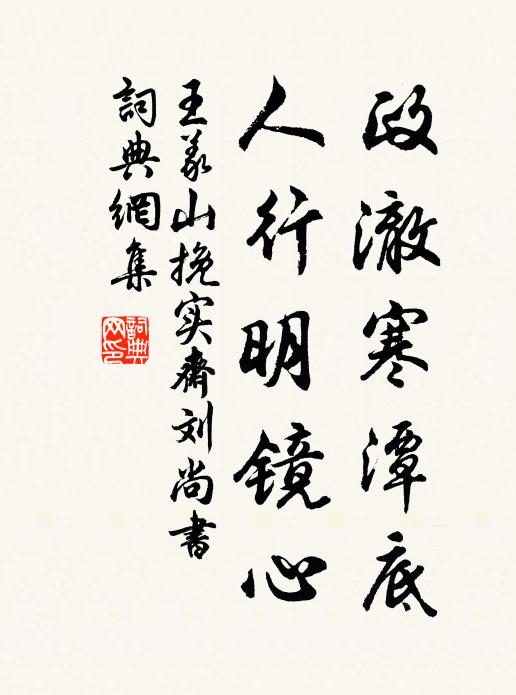 政澈寒潭底
人行明镜心
王义山挽实斋刘尚书
詞典網集
詞典
网印